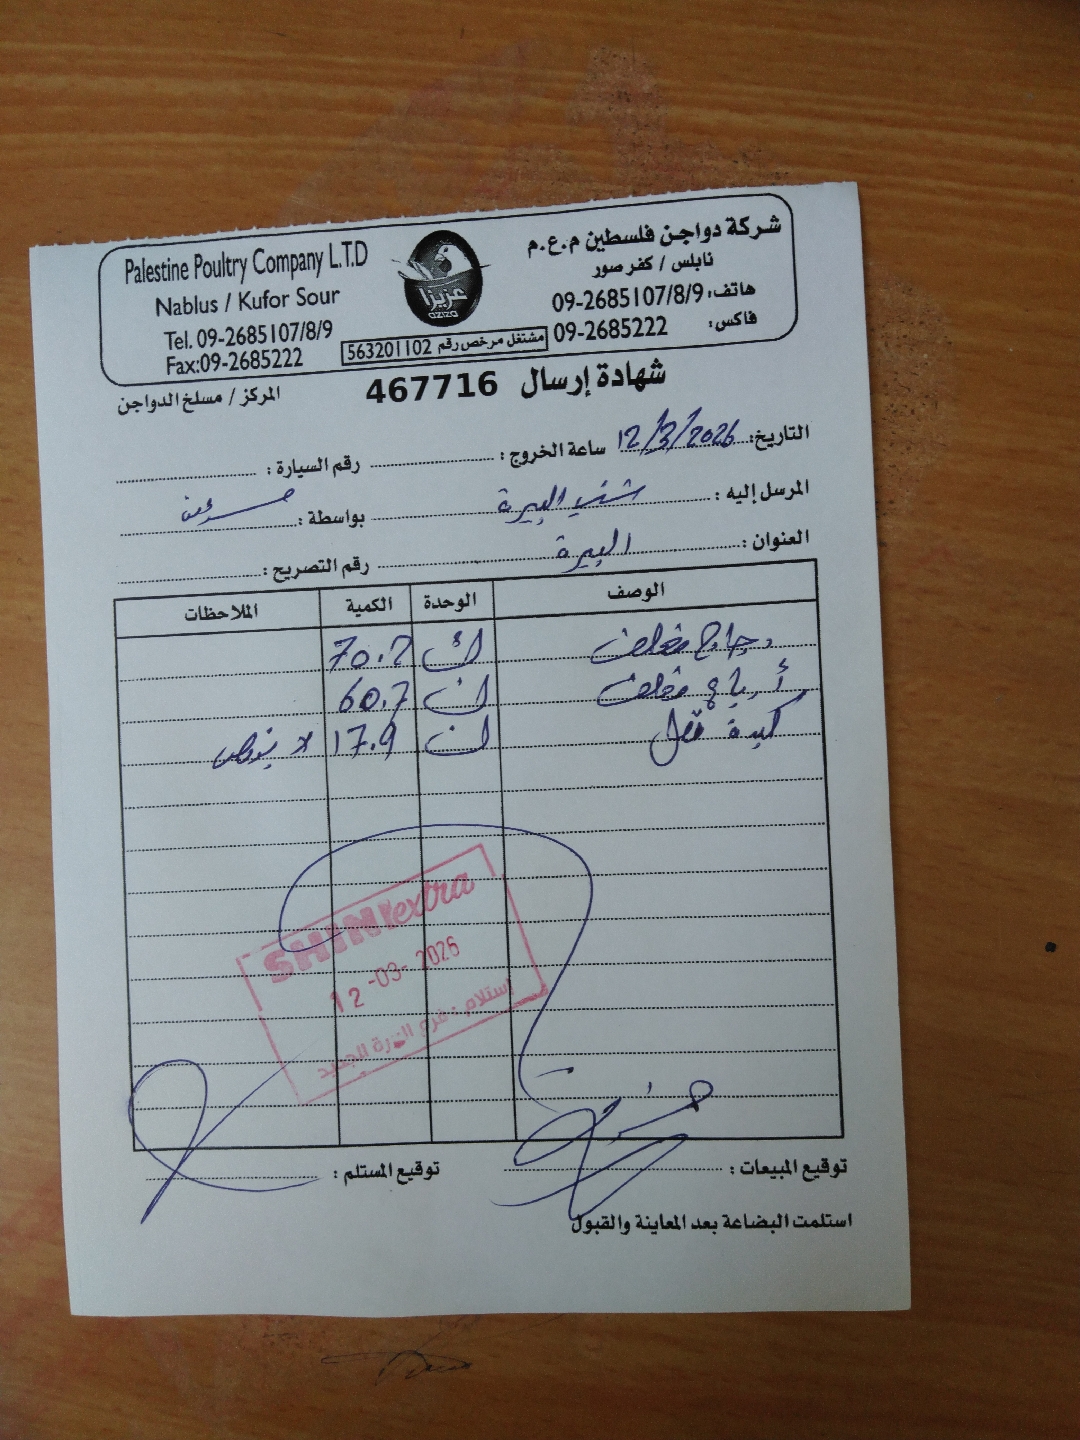 شركة دواجن فلسطين م.ع.م
نابلس / كفر صور
هاتف: 09-2685107/8/9
فاكس: 09-2685222
عزيزا
aziza
مشتغل مرخص رقم 563201102
Palestine Poultry Company L.T.D
Nablus / Kufor Sour
Tel. 09-2685107/8/9
Fax:09-2685222
شهادة إرسال 467716
المركز / مسلخ الدواجن
التاريخ: 12/3/2026 ساعة الخروج : رقم السيارة :
المرسل إليه : شني البيرة بواسطة :
العنوان : البيرة رقم التصريح :
الوصف الوحدة الكمية الملاحظات
دجاج مغلف ك 70.2
أرباع مغلف ك 60.7
كبدة ك 17.9
SHINI extra
12-03-2026
إستلام : فرع
توقيع المبيعات : توقيع المستلم :
استلمت البضاعة بعد المعاينة والقبول